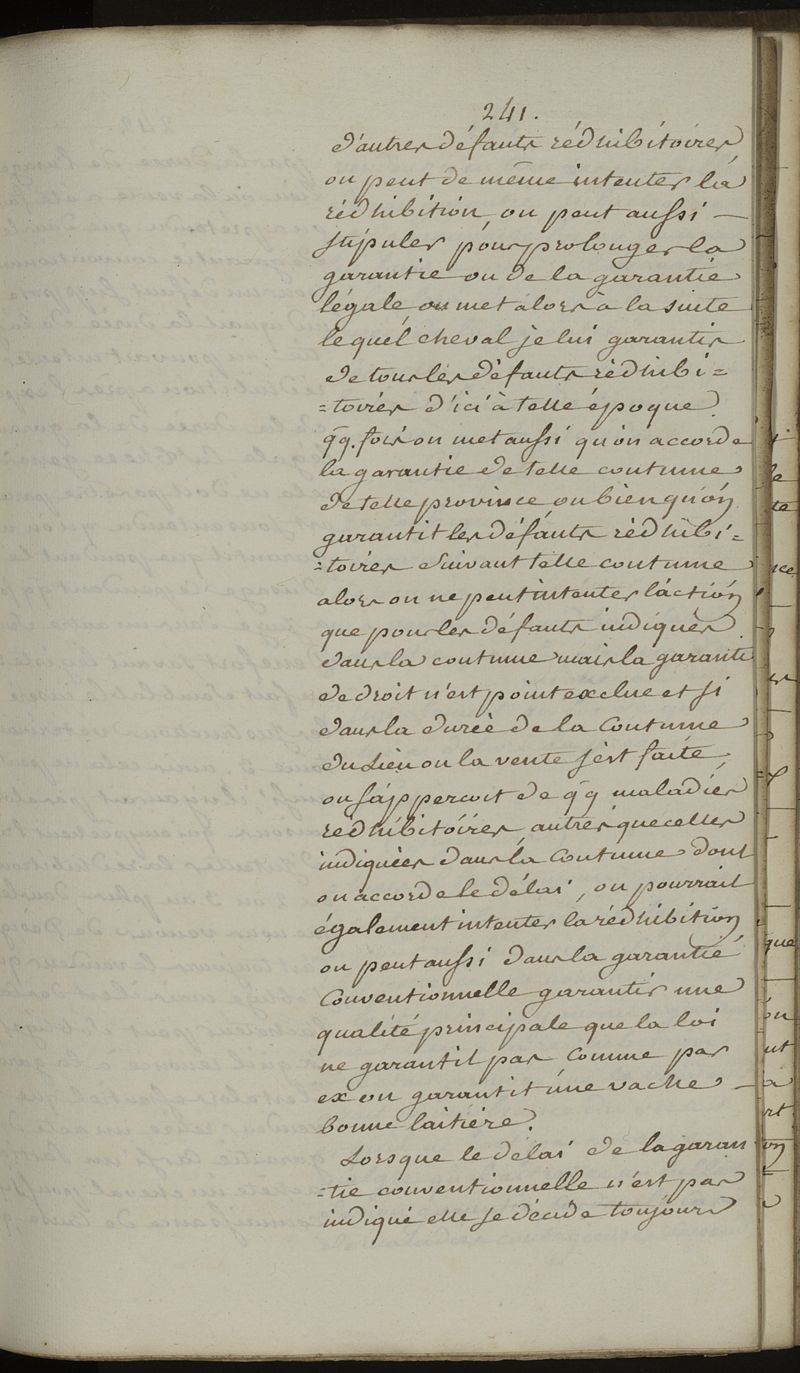 241.
d'autres défauts rédhibitoires
on peut de même intenter la
rédhibition, on peut aussi —
stipuler pour prolonger la
garantie ou de la garantie
légale, on met alors à la suite
lequel cheval je lui garantis
de tous les défauts rédhibi=
=toires d'ici à telle époque.
qq. fois on met aussi qu'on accorde
la garantie de telle coutume
de telle province ou bien qu'on
garantit les défauts rédhibi=
=toires suivant telle coutume
alors on ne peut intenter l'action
que pour les défauts indiqués
dans la coutume mais la garantie
de droit n'est point exclue et si
dans la durée de la Coutume
du Lieu ou la vente s'est faite,
on s'apperçoit de qq maladies
rédhibitoires, autres que celles
indiquées dans la Coutume dont
on accorde le délai, on pourrait
également intenter la rédhibition
on peut aussi dans la garantie
Conventionnelle garantir une
qualité principale que la loi
ne garantit pas Comme par
ex on garantit une vache —
bonne laitière.
Lorsque le délai de la garan
=tie conventionnelle n'est pas
indiqué elle se décide toujours